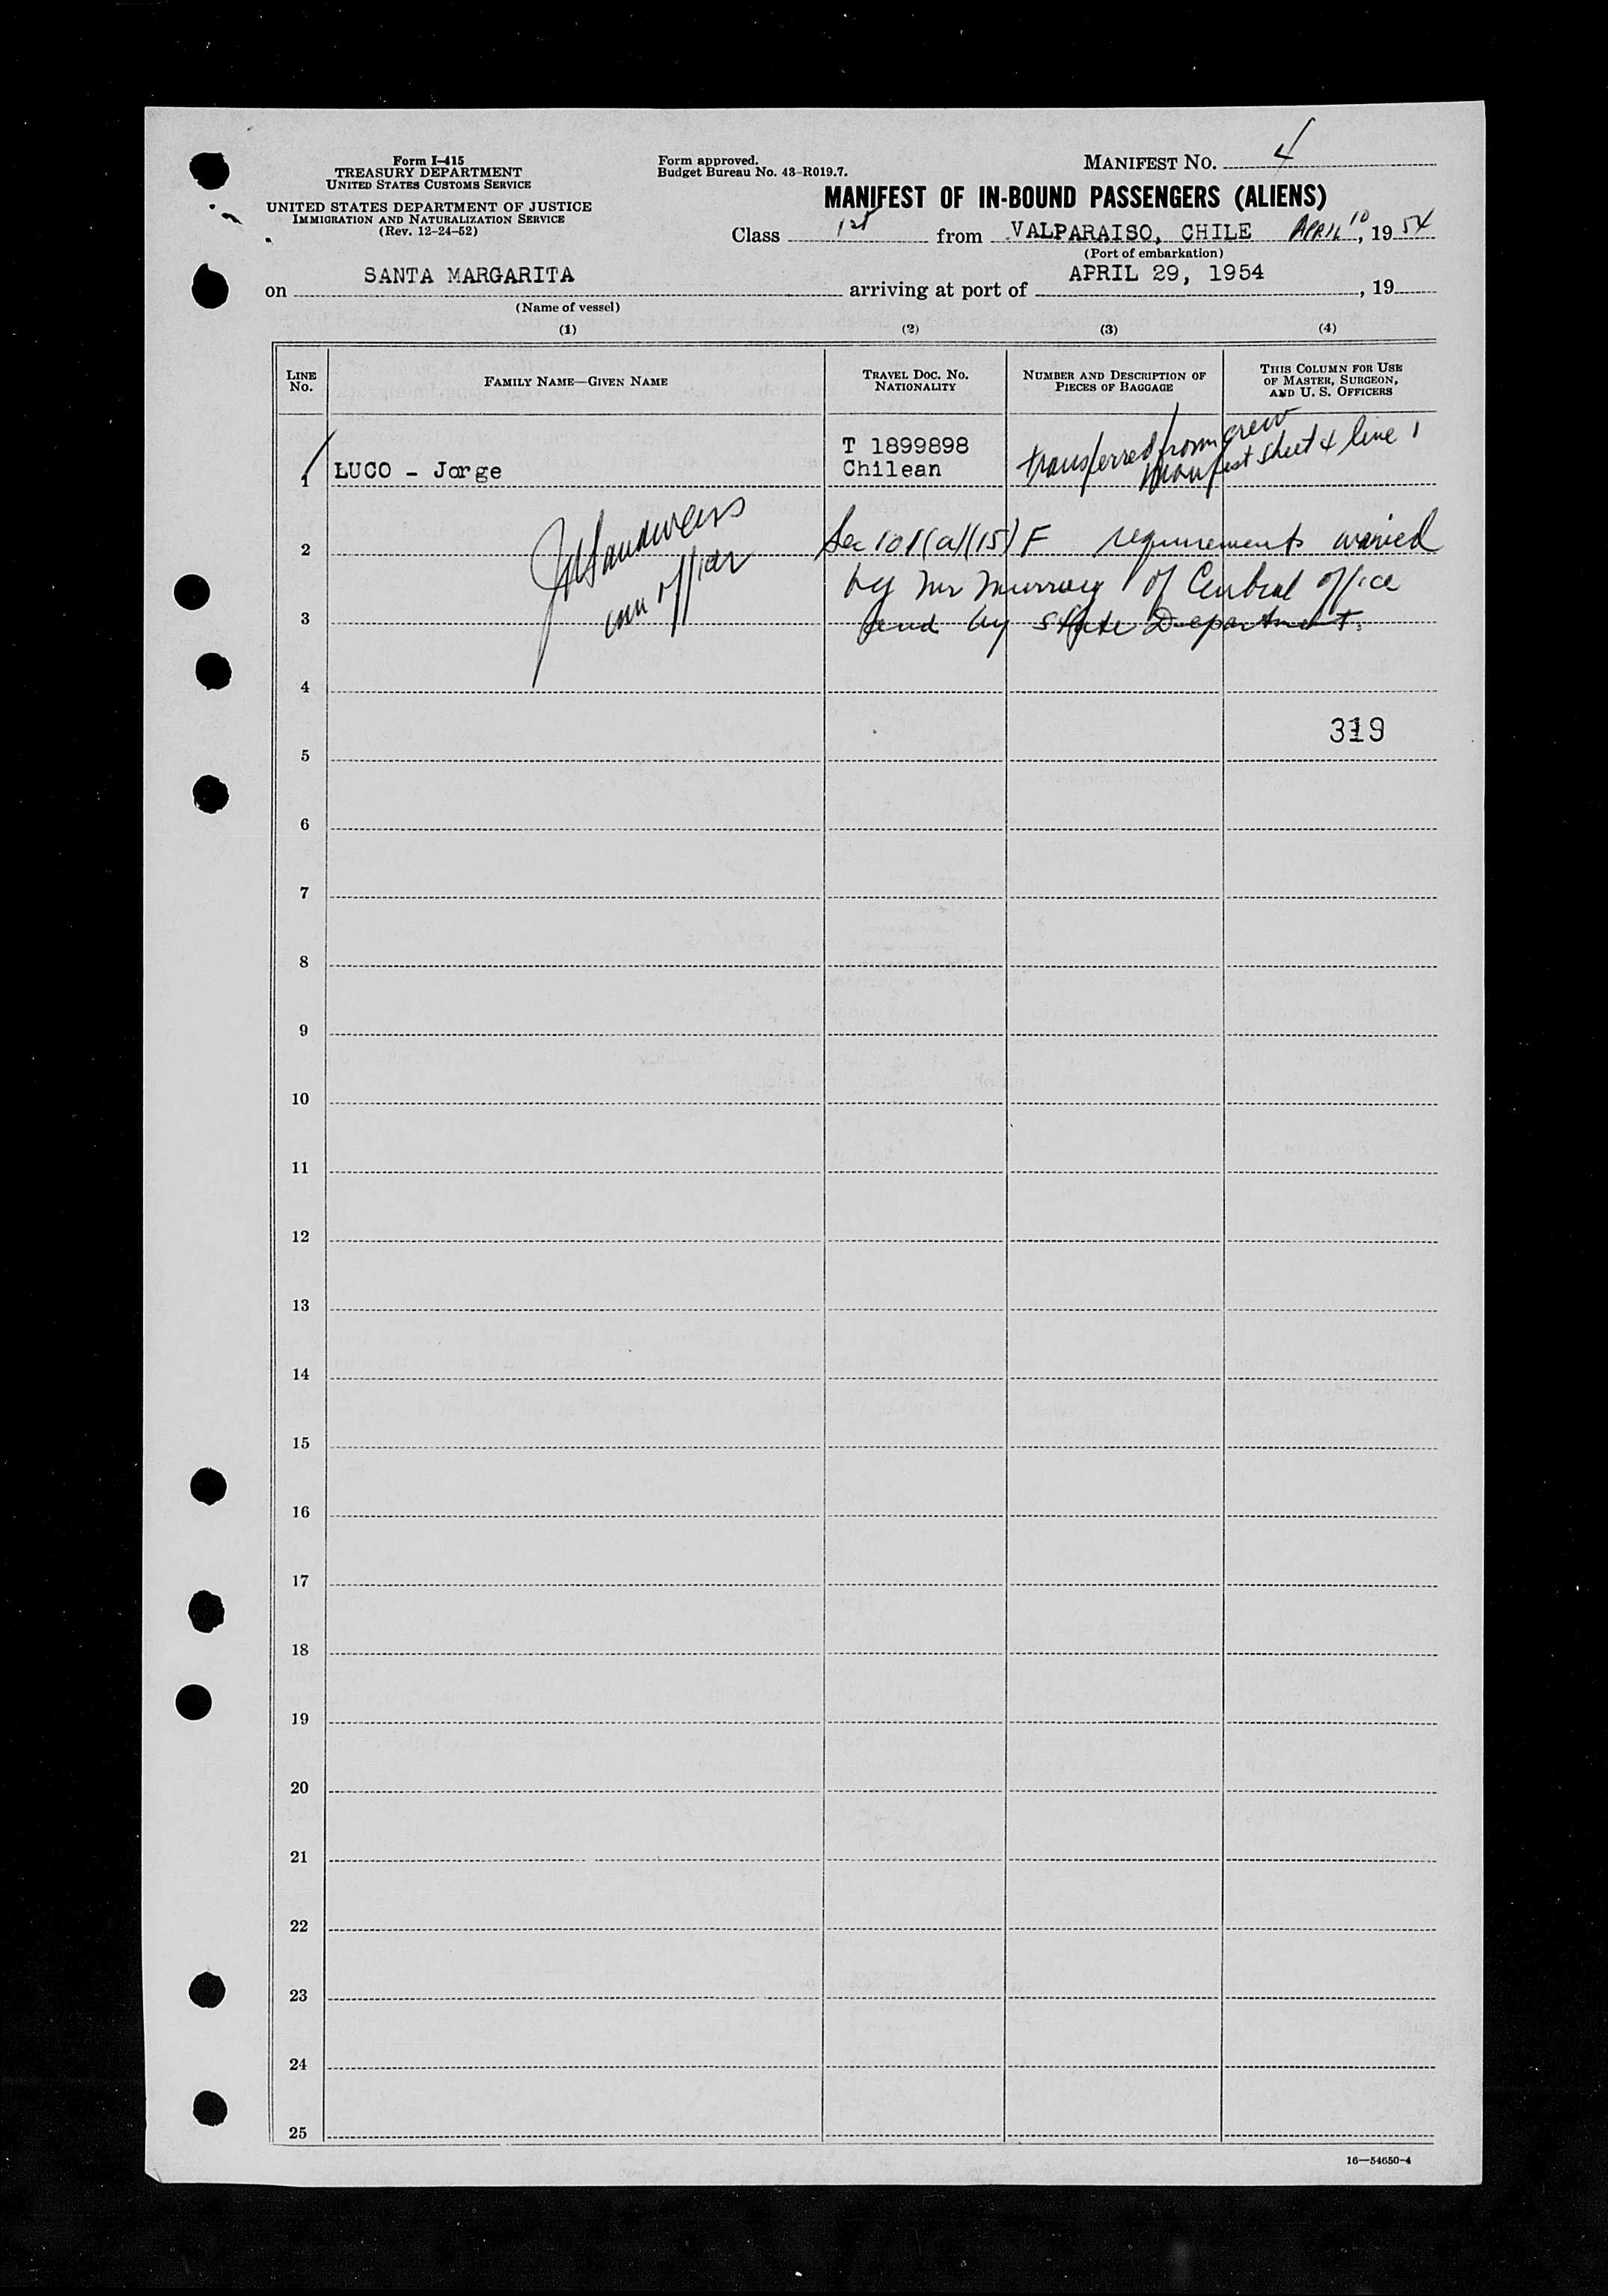 Form I-415
TREASURY DEPARTMENT
UNITED STATES CUSTOMS SERVICE
UNITED STATES DEPARTMENT OF JUSTICE
IMMIGRATION AND NATURALIZATION SERVICE
(Rev. 12-24-52)
Form approved.
Budget Bureau No. 43-R019.7.
MANIFEST NO. 4
MANIFEST OF IN-BOUND PASSENGERS (ALIENS)
Class 1st from VALPARAISO, CHILE APRIL 10, 1954
(Port of embarkation)
on SANTA MARGARITA arriving at port of APRIL 29, 1954, 19
(Name of vessel)
(1) (2) (3) (4)
LINE No. FAMILY NAME—GIVEN NAME TRAVEL DOC. NO. NATIONALITY NUMBER AND DESCRIPTION OF PIECES OF BAGGAGE THIS COLUMN FOR USE OF MASTER, SURGEON, AND U. S. OFFICERS
T 1899898
1 LUCO - Jorge Chilean
transferred from crew
manifest sheet 4 line 1
2 Sec 101(a)(15) F requirements waived
by Mr Murray of Central office
3 and by State Department.
imm officer
4
319
5
6
7
8
9
10
11
12
13
14
15
16
17
18
19
20
21
22
23
24
25
16—54650-4